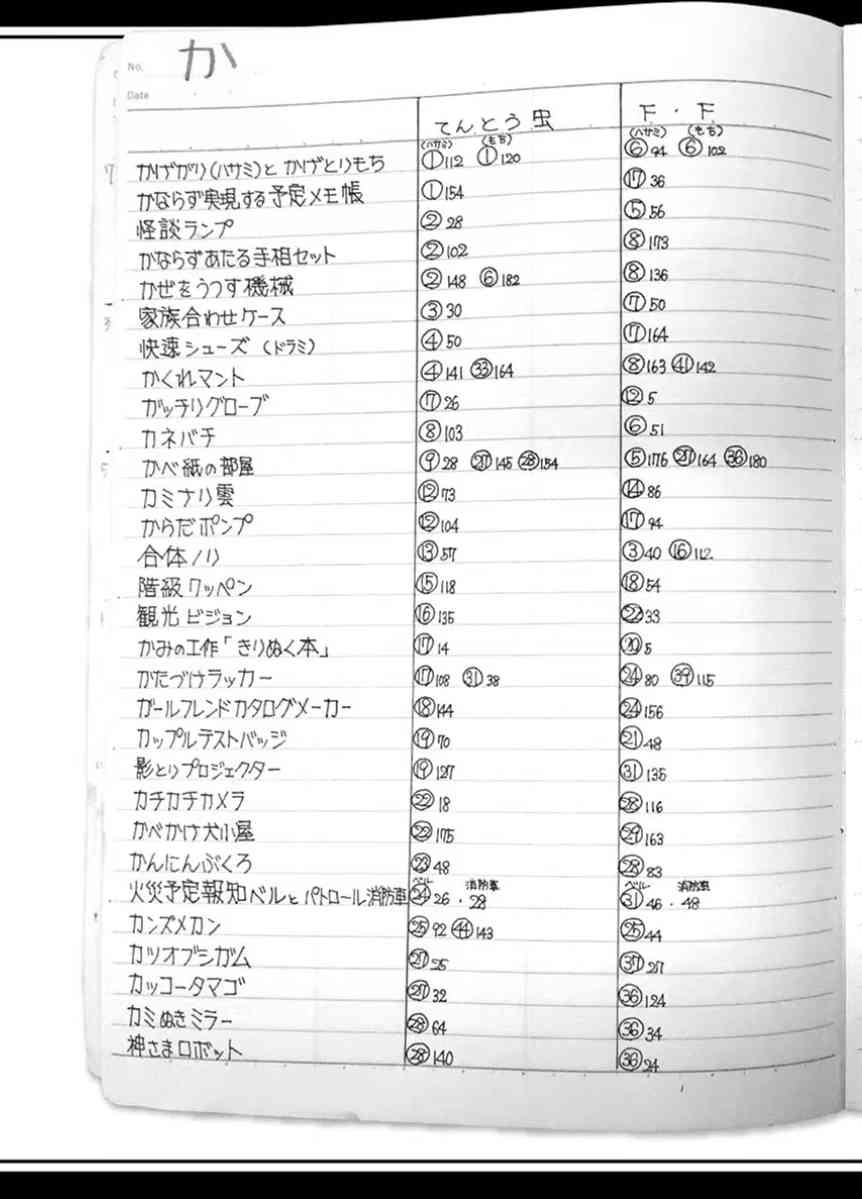 No.
か
Date
てんとう虫 F・F
(ハサミ) (もち) (ハサミ) (もち)
かげがり(ハサミ)と かげとりもち ①112 ①120 ⑥94 ⑥102
かならず実現する予定メモ帳 ①154 ⑰36
怪談ランプ ②28 ⑤56
かならずあたる手相セット ②102 ⑧173
かぜをうつす機械 ②148 ⑥182 ⑧136
家族合わせケース ③30 ⑦50
快速シューズ(ドラミ) ④50 ⑰164
かくれマント ④141 ㉝164 ⑧163 ㊶142
ガッチリグローブ ⑦26 ⑫5
カネバチ ⑧103 ⑥51
かべ紙の部屋 ⑨28 ㉗145 ㉘154 ⑤176 ㉗164 ㊱180
カミナリ雲 ⑫73 ⑭86
からだポンプ ⑫104 ⑰94
合体ノリ ⑬57 ③40 ⑯112
階級ワッペン ⑮118 ⑱54
観光ビジョン ⑯135 ㉒33
かみの工作「きりぬく本」 ⑰14 ⑳5
かたづけラッカー ⑰108 ㉛38 ㉔80 ㊴115
ガールフレンドカタログメーカー ⑱144 ㉔156
カップルテストバッジ ⑲70 ㉑48
影とりプロジェクター ⑲127 ㉛135
カチカチカメラ ㉒18 ㉘116
かべかけ犬小屋 ㉒175 ㉙163
かんにんぶくろ ㉓48 ㉘83
ベル 消防車 ベル 消防車
火災予定報知ベルとパトロール消防車 ㉔26・28 ㉛46・48
カンヅメカン ㉕92 ㊹143 ㉕44
カツオブシガム ㉗25 ㊲27
カッコータマゴ ㉗32 ㊱124
カミぬきミラー ㉘64 ㊱34
神さまロボット ㉘140 ㊱24